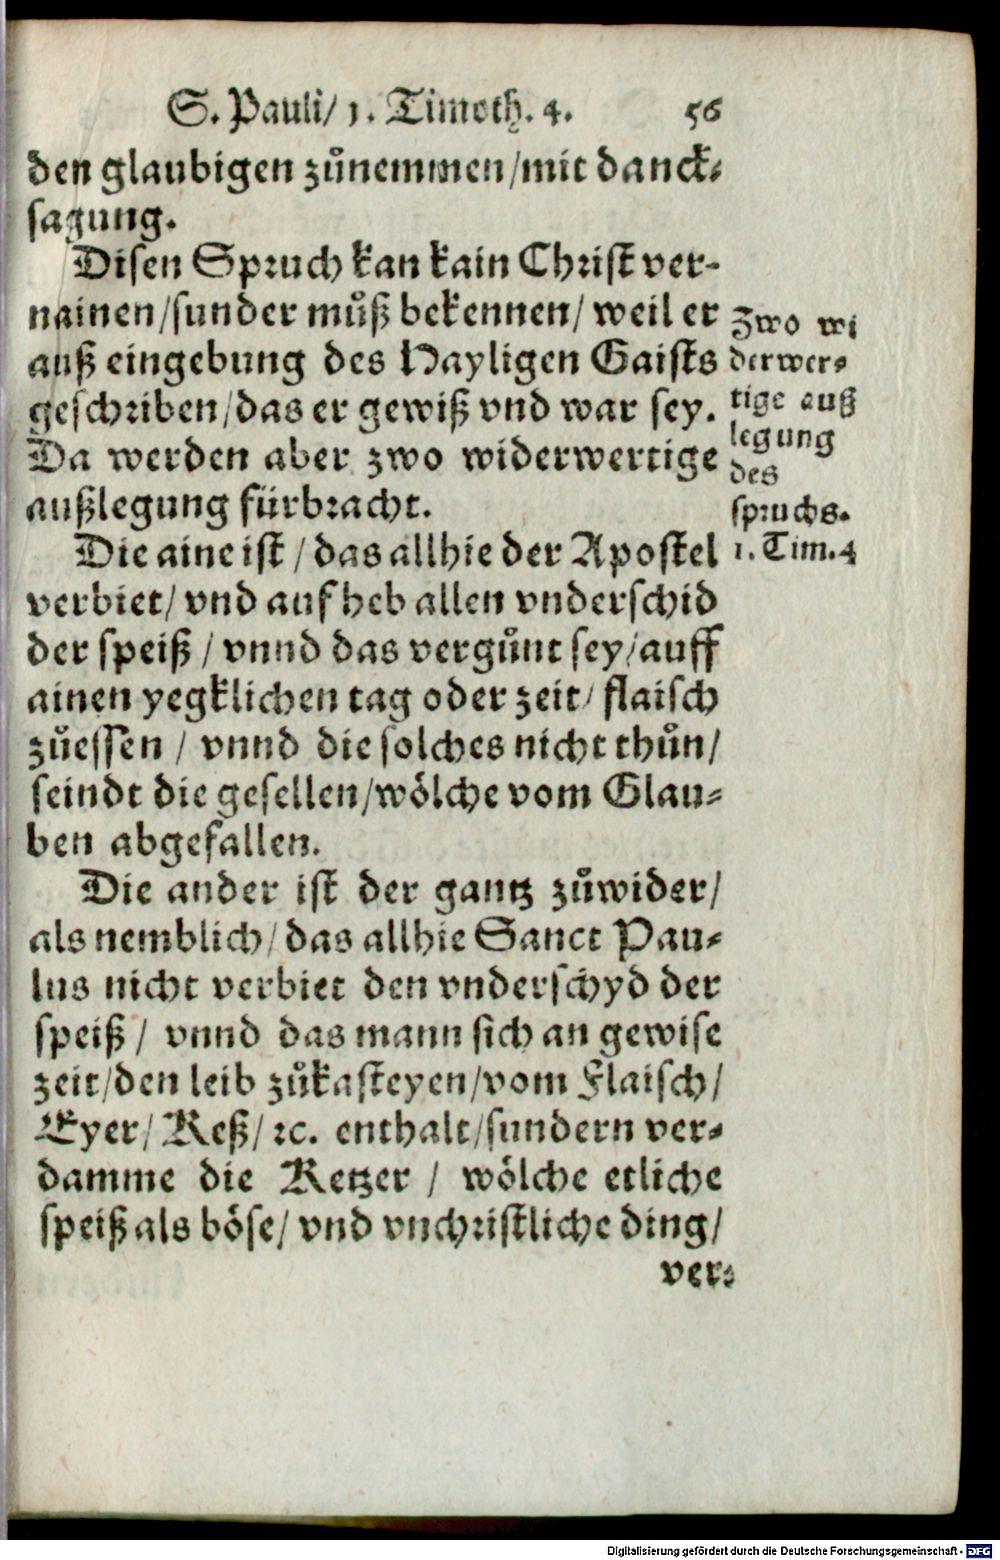 S. Pauli/ 1. Timoth. 4. 56
den glaubigen zůnemmen/mit danck-
sagung.
Disen Spruch kan kain Christ ver-
nainen/sunder můß bekennen/ weil er
auß eingebung des Hayligen Gaists
geschriben/das er gewiß vnd war sey.
Da werden aber zwo widerwertige
außlegung fürbracht.
Die aine ist / das allhie der Apostel
verbiet/ vnd auf heb allen vnderschid
der speiß / vnnd das vergůnt sey/auff
ainen yegklichen tag oder zeit/ flaisch
zůessen / vnnd die solches nicht thůn/
seindt die gesellen/wölche vom Glau-
ben abgefallen.
Die ander ist der gantz zůwider/
als nemblich/das allhie Sanct Pau-
lus nicht verbiet den vnderschyd der
speiß / vnnd das mann sich an gewise
zeit/den leib zůkasteyen/vom Flaisch/
Eyer/ Keß/ ꝛc. enthalt/sundern ver-
damme die Ketzer / wölche etliche
speiß als böse/ vnd vnchristliche ding/
ver-
Zwo wi
derwer-
tige auß
legung
des
spruchs.
1. Tim. 4
Digitalisierung gefördert durch die Deutsche Forschungsgemeinschaft - DFG